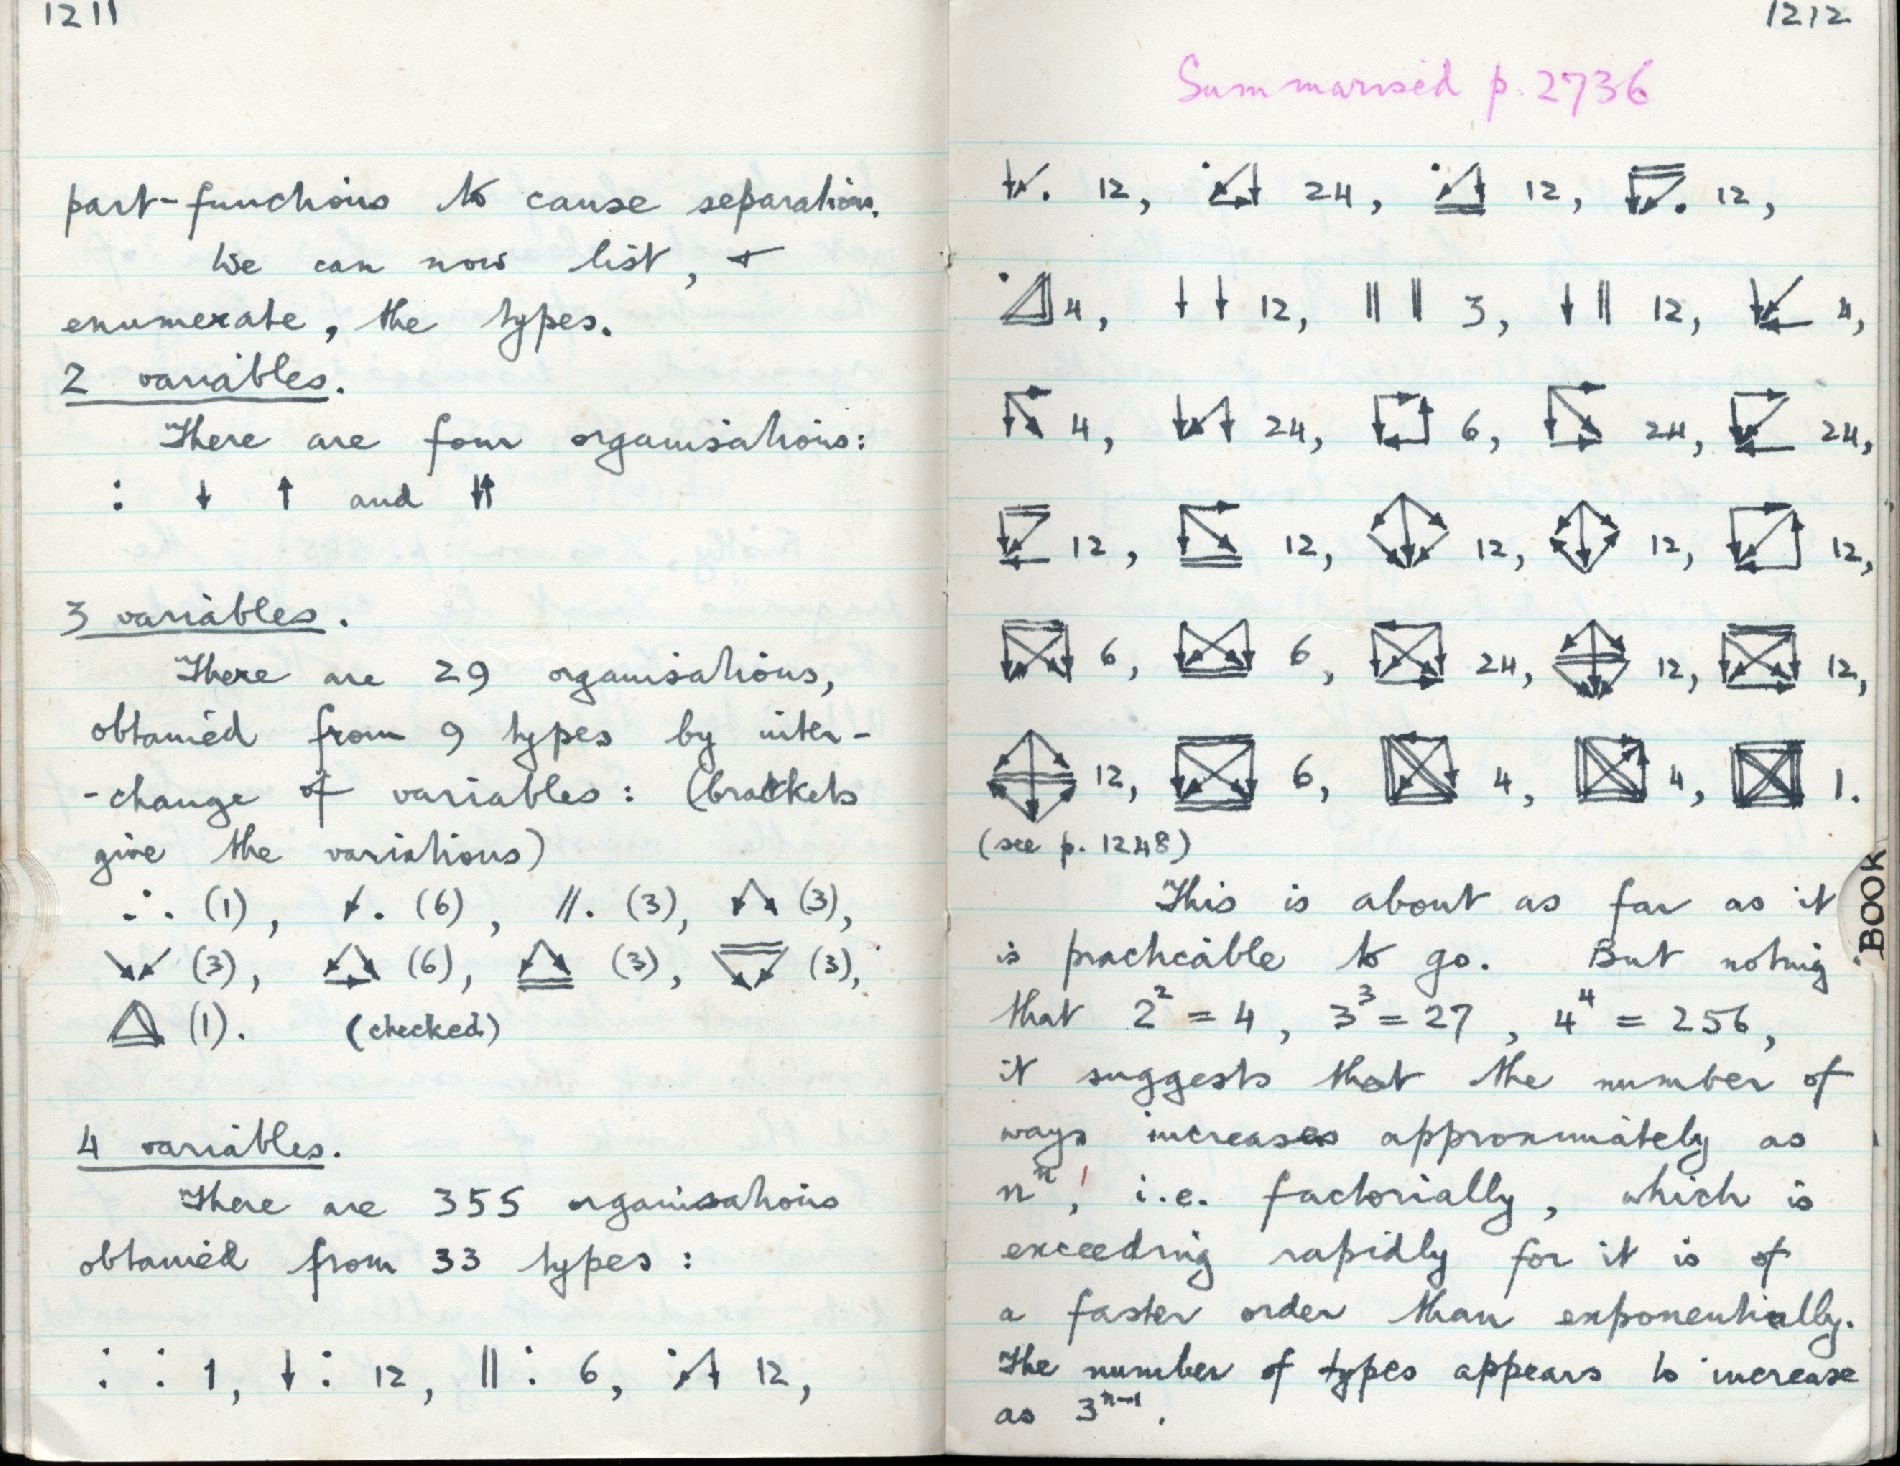 1211
part-functions to cause separations.
We can now list, +
enumerate, the types.
2 variables.
There are four organisations:
: ↓ ↑ and ⇅
3 variables.
There are 29 organisations,
obtained from 9 types by inter-
-change of variables: (brackets
give the variations)
(1), (6), (3), (3),
(3), (6), (3), (3),
(1). (checked)
4 variables.
There are 355 organisations
obtained from 33 types:
1, 12, 6, 12,
1212
Summarised p. 2736
12, 24, 12, 12,
4, 12, 3, 12, 4,
4, 24, 6, 24, 24,
12, 12, 12, 12, 12,
6, 6, 24, 12, 12,
12, 6, 4, 4, 1.
(see p. 1248)
This is about as far as it
is practicable to go. But noting
that 2² = 4, 3³ = 27, 4⁴ = 256,
it suggests that the number of
ways increases approximately as
nⁿ, i.e. factorially, which is
exceeding rapidly for it is of
a faster order than exponentially.
The number of types appears to increase
as 3ⁿ⁻¹.
BOOK